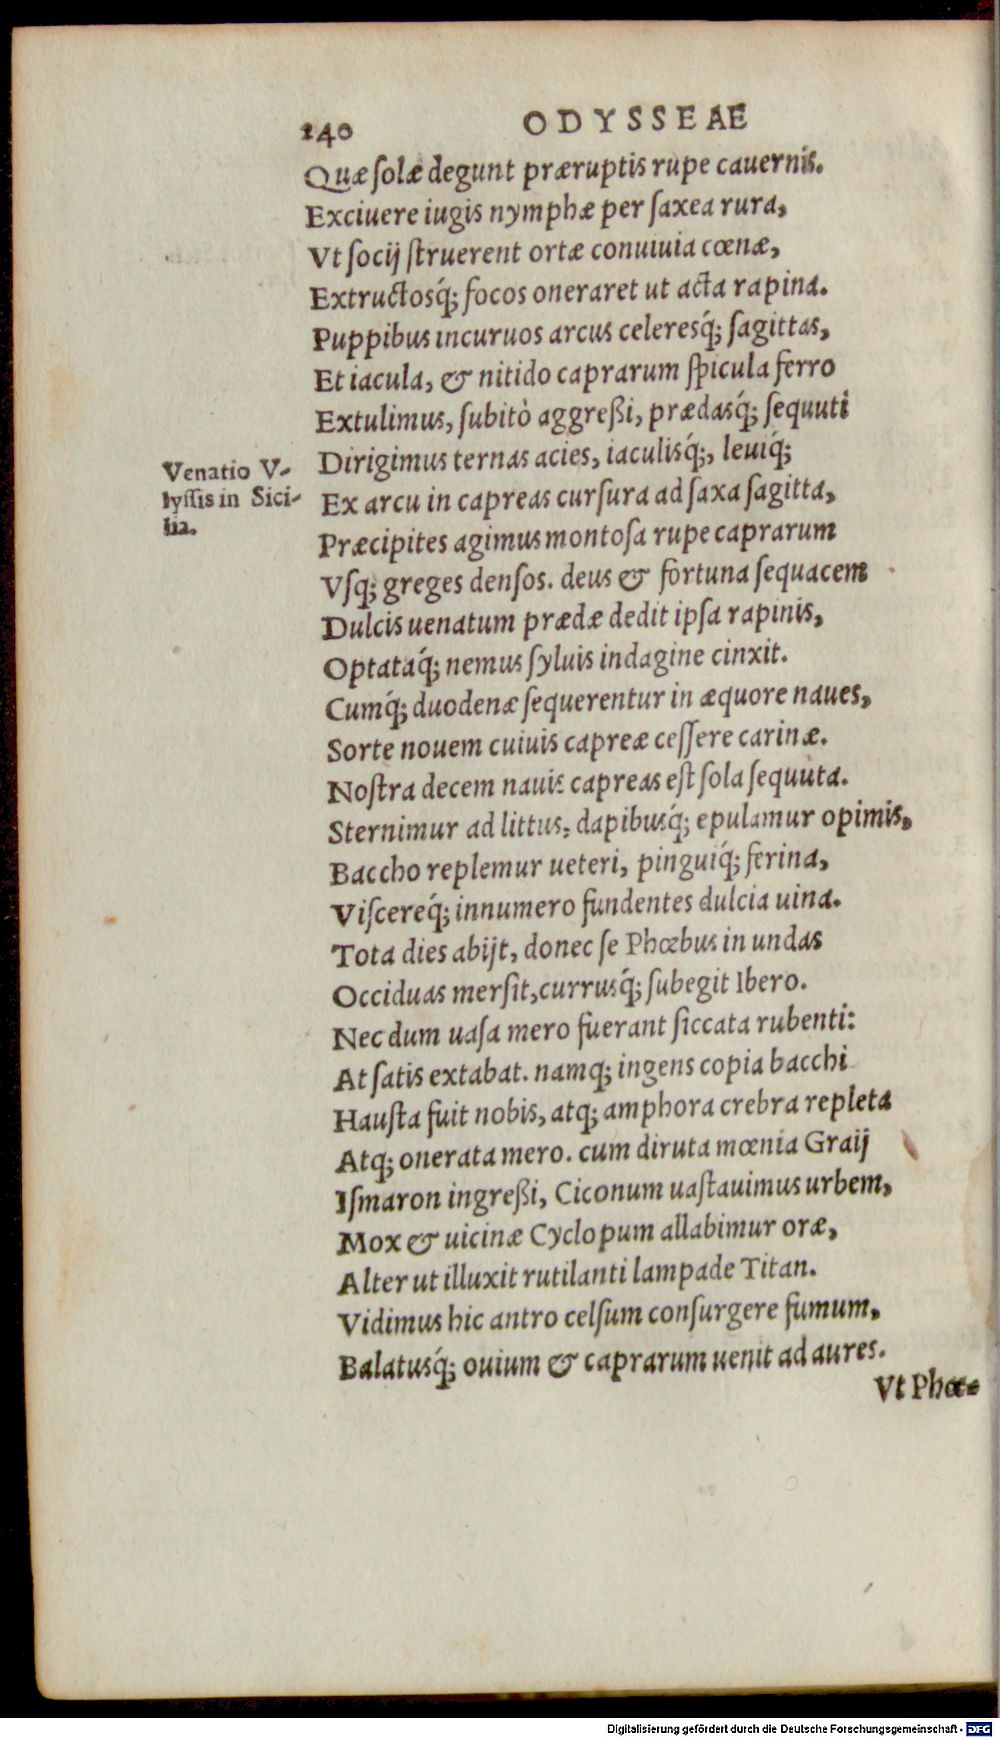 240
ODYSSEAE
Quæ solæ degunt præruptis rupe cauernis.
Exciuere iugis nymphæ per saxea rura,
Vt socij struerent ortæ conuiuia cœnæ,
Extructosq́; focos oneraret ut acta rapina.
Puppibus incuruos arcus celeresq́; sagittas,
Et iacula, & nitido caprarum spicula ferro
Extulimus, subitò aggreßi, prædasq́; sequuti
Dirigimus ternas acies, iaculisq́;, leuiq́;
Venatio V-
lyssis in Sici-
lia.
Ex arcu in capreas cursura ad saxa sagitta,
Præcipites agimus montosa rupe caprarum
Vsq; greges densos. deus & fortuna sequacem
Dulcis uenatum prædæ dedit ipsa rapinis,
Optataq́; nemus syluis indagine cinxit.
Cumq́; duodenæ sequerentur in æquore naues,
Sorte nouem cuiuis capreæ cessere carinæ.
Nostra decem nauis capreas est sola sequuta.
Sternimur ad littus, dapibusq́; epulamur opimis,
Baccho replemur ueteri, pinguiq́; ferina,
Viscereq́; innumero fundentes dulcia uina.
Tota dies abijt, donec se Phœbus in undas
Occiduas mersit, currusq́; subegit Ibero.
Nec dum uasa mero fuerant siccata rubenti:
At satis extabat. namq; ingens copia bacchi
Hausta fuit nobis, atq; amphora crebra repleta
Atq; onerata mero. cum diruta mœnia Graij
Ismaron ingreßi, Ciconum uastauimus urbem,
Mox & uicinæ Cyclopum allabimur oræ,
Alter ut illuxit rutilanti lampade Titan.
Vidimus hic antro celsum consurgere fumum,
Balatusq́; ouium & caprarum uenit ad aures.
Vt Phœ-
Digitalisierung gefördert durch die Deutsche Forschungsgemeinschaft - DFG